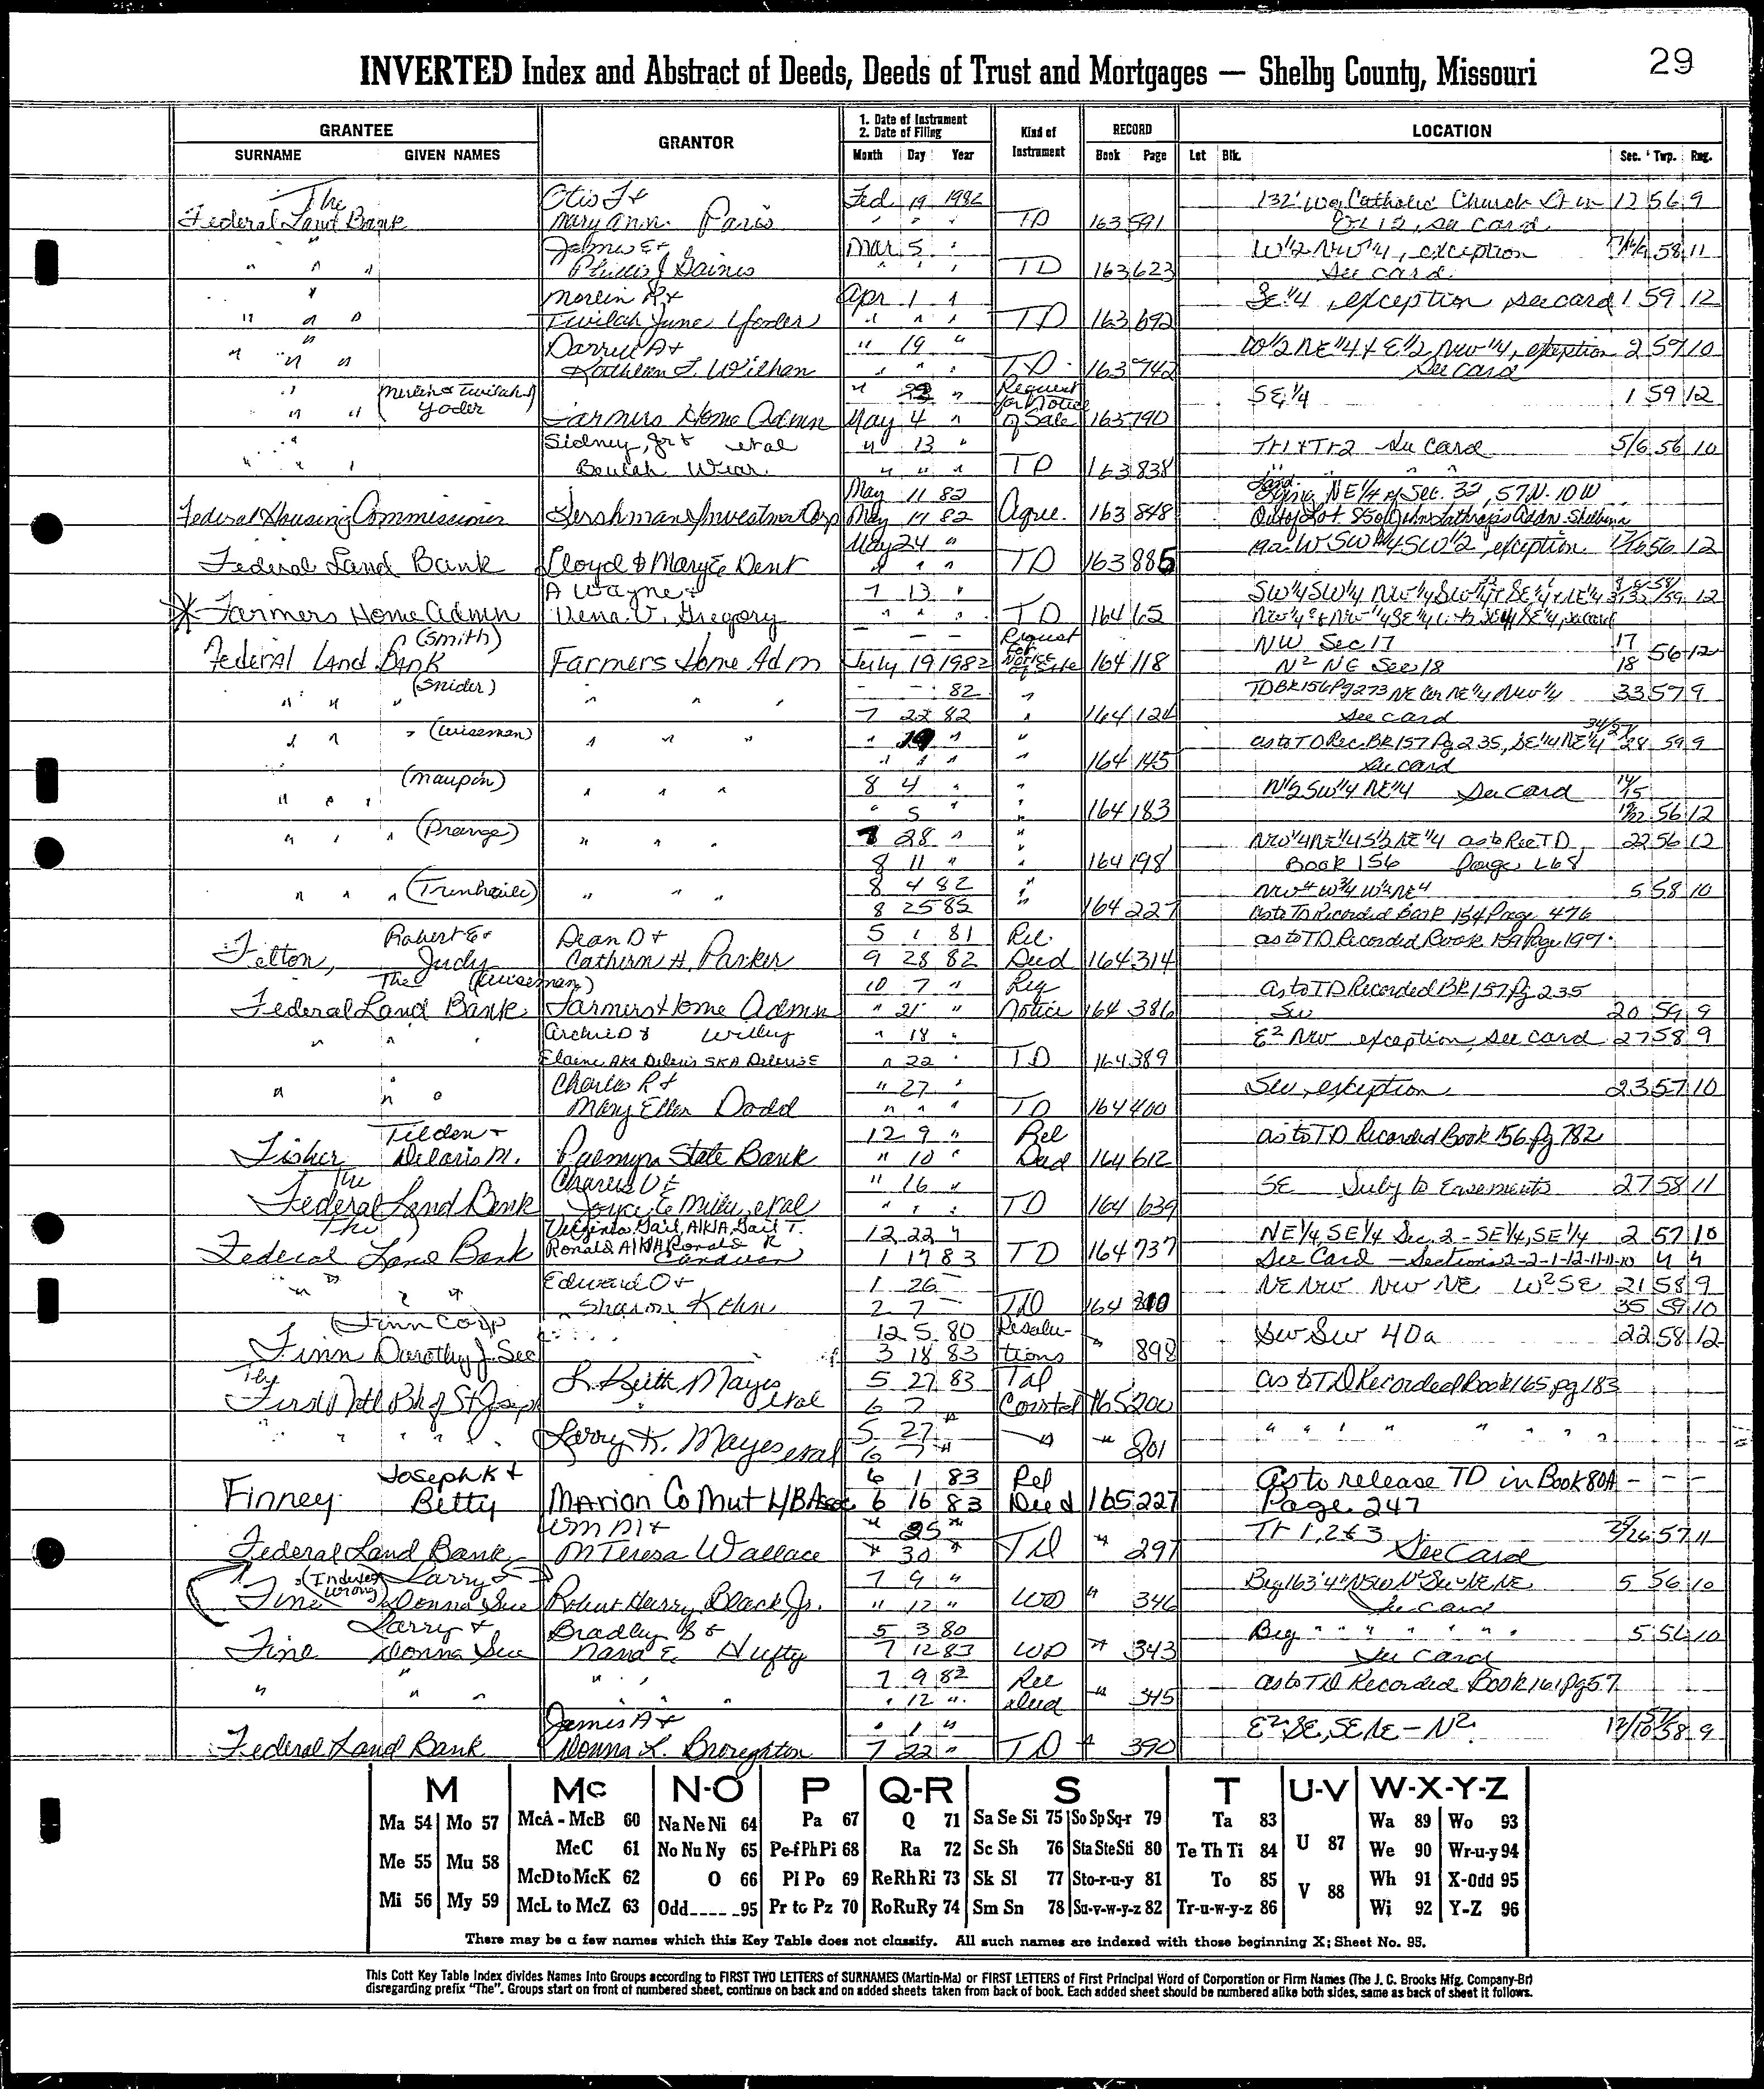 29
INVERTED Index and Abstract of Deeds, Deeds of Trust and Mortgages — Shelby County, Missouri
GRANTEE GRANTOR 1. Date of Instrument 2. Date of Filing Kind of Instrument RECORD LOCATION
SURNAME GIVEN NAMES Month Day Year Book Page Lot Blk. Sec. Twp. Rng.
The Otis J & Feb 19 1982 132' Catholic Church 12 56 9
Federal Land Bank Mary Ann Paris " " " TD 163 591 12, see card
James E & Mar 5 " W 1/2 NW 1/4, exception 58 11
" " " Phillis J Gaines " " " TD 163 623 See card
" Merlin R & Apr 1 " SE 1/4, exception see card 1 59 12
" " " Twilah June Yoder " " " TD 163 692
" Darrell A & " 19 " W 1/2 NE 1/4 & E 1/2 NW 1/4, exception 2 59 10
" " " Kathleen L. Wilhan " " " TD 163 742 See card
" (Merlin & Twilah Yoder) " 23 " Request for Notice SE 1/4 1 59 12
" " Farmers Home Admn May 4 " of Sale 163 790
" Sidney, Jr & et al " 13 " Tr 1 & Tr 2 See Card 5/6 56 10
" " " Beulah Wear " " " TD 163 838 " " "
May 11 82 Land Lying NE 1/4 of Sec. 32, 57 N. 10 W
Federal Housing Commissioner Investmen Corp May 17 82 Agree. 163 848 Out of Lot 85 of John Lathrops Addn. Shelbina
May 24 " W SW 1/4 SW 1/2, exception 56 12
Federal Land Bank Lloyd & Mary E Dent " " " TD 163 885
A Wayne & 7 13 " SW 1/4 SW 1/4 NW 1/4 SW 1/4
* Farmers Home Admn Vena V. Gregory " " " TD 164 65 see card
(Smith) — — — Request for NW Sec 17 17
Federal Land Bank Farmers Home Adm July 19 1982 Notice of Sale 164 118 N2 NE Sec 18 18 56 12
(Snider) — — 82 " TD Bk 156 Pg 273 NE Cor NE 1/4 NW 1/4 33 57 9
" " " " " " 7 22 82 " 164 124 See card
" " " (Wiseman) " " " " 19 " " as to TD Rec. Bk 157 Pg 235, SE 1/4 NE 1/4 28 59 9
" " " " 164 145 See card
(Maupin) 8 4 " " N 1/2 SW 1/4 NE 1/4 See Card 14/15
" " " " " " " 5 " " 164 183 56 12
" " " (Prange) " " " 7 28 " " NW 1/4 NE 1/4 S 1/2 NE 1/4 as to Rec TD 22 56 12
8 11 " " 164 198 Book 156 Page 268
" " " (Trenhaile) " " " 8 4 82 " 5 58 10
8 25 82 " 164 227 as to TD Recorded Book 154 Page 476
Robert E & Dean D & 5 1 81 Rel. as to TD Recorded Book 159 Page 197
Felton, Judy Cathern H. Parker 9 28 82 Deed 164 314
The (Wiseman) 10 7 " Req as to TD Recorded Bk 157 Pg 235
Federal Land Bank Farmers Home Admn " 21 " Notice 164 386 SW 20 59 9
Archie D & Willey " 18 " E2 NW exception, see card 27 58 9
" " " Elaine AKA Deloris SKA Delorise " 22 " TD 164 389
" Charles R & " 27 " SW, exception 23 57 10
" " " Mary Ellen Dodd " " " TD 164 400
Tilden & 12 9 " Rel as to TD Recorded Book 156 Pg 782
Fisher Deloris M. Palmyra State Bank " 10 " Deed 164 612
The Charles D & " 16 " SE Subj to Easements 27 58 11
Federal Land Bank Joyce E Miller, et al " " " TD 164 639
The Virginia Gail, A/K/A Gail T. 12 22 " NE 1/4, SE 1/4 Sec. 2 - SE 1/4, SE 1/4 2 57 10
Federal Land Bank Ronald A/K/A Ronald R 1 17 83 TD 164 737 See Card - Sections 2-2-1-12-11-11-10 " "
Edward O & 1 26 — NE NW NW NE W2 SE 21 58 9
" " " Sharon Kehn 2 7 — TD 164 810 35 59 10
(Finn Corp 12 5 80 Resolu- SW SW 40a 22 58 12
Finn Dorothy J. Sec 3 18 83 tions " 898
The L. Keith Mayes 5 27 83 as to TD Recorded Book 165 pg 183
First Natl Bk of St Joseph et al 6 7 " 165 200
" " " " Larry K. Mayes et al 5 27 " " " " " " " "
6 7 " " 201
Joseph K & 6 1 83 Rel As to release TD in Book 80A — — —
Finney Betty Marion Co Mut H/B Assoc 6 16 83 Deed 165 227 Page 247
Wm M & " 25 " Tr 1, 2 & 3 57 11
Federal Land Bank M Teresa Wallace " 30 " TD " 297 See Card
(Indexed Wrong) Larry & 7 9 " 5 56 10
Fine Donna Sue Robert Harry Black Jr. " 12 " WD " 346 See Card
Larry & Bradley S & 5 3 80 Beg " " " " " " 5 56 10
Fine Donna Sue Nana E. Hufty 7 12 83 WD " 343 See Card
" " " " " 7 9 82 Rel as to TD Recorded Book 161 Pg 57
" 12 " Deed " 345
James A & " 1 " E2 SE, SE NE - N2
Federal Land Bank Donna L. Broughton 7 22 " TD " 390 58 9
M Mc N-O P Q-R S T U-V W-X-Y-Z
Ma 54 Mo 57 McA - McB 60 Na Ne Ni 64 Pa 67 Q 71 Sa Se Si 75 So Sp Sq-r 79 Ta 83 U 87 Wa 89 Wo 93
Me 55 Mu 58 McC 61 No Nu Ny 65 Pe-f Ph Pi 68 Ra 72 Sc Sh 76 Sta Ste Sti 80 Te Th Ti 84 We 90 Wr-u-y 94
McD to McK 62 O 66 Pl Po 69 Re Rh Ri 73 Sk Sl 77 Sto-r-u-y 81 To 85 V 88 Wh 91 X-Odd 95
Mi 56 My 59 McL to McZ 63 Odd 95 Pr to Pz 70 Ro Ru Ry 74 Sm Sn 78 Su-v-w-y-z 82 Tr-u-w-y-z 86 Wi 92 Y-Z 96
There may be a few names which this Key Table does not classify. All such names are indexed with those beginning X; Sheet No. 95.
This Cott Key Table Index divides Names Into Groups according to FIRST TWO LETTERS of SURNAMES (Martin-Ma) or FIRST LETTERS of First Principal Word of Corporation or Firm Names (The J. C. Brooks Mfg. Company-Br)
disregarding prefix "The". Groups start on front of numbered sheet, continue on back and on added sheets taken from back of book. Each added sheet should be numbered alike both sides, same as back of sheet it follows.